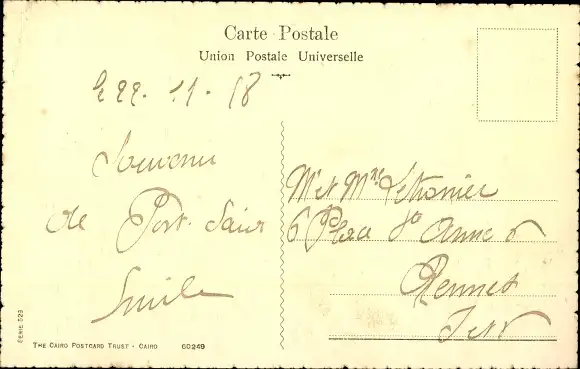 Carte Postale
Union Postale Universelle
le 22 - 11 - 18
Souvenir
de Port-Said
Emile
Mr et Mme
6 Place Ste Anne
Rennes
SERIE 523
THE CAIRO POSTCARD TRUST - CAIRO 60249